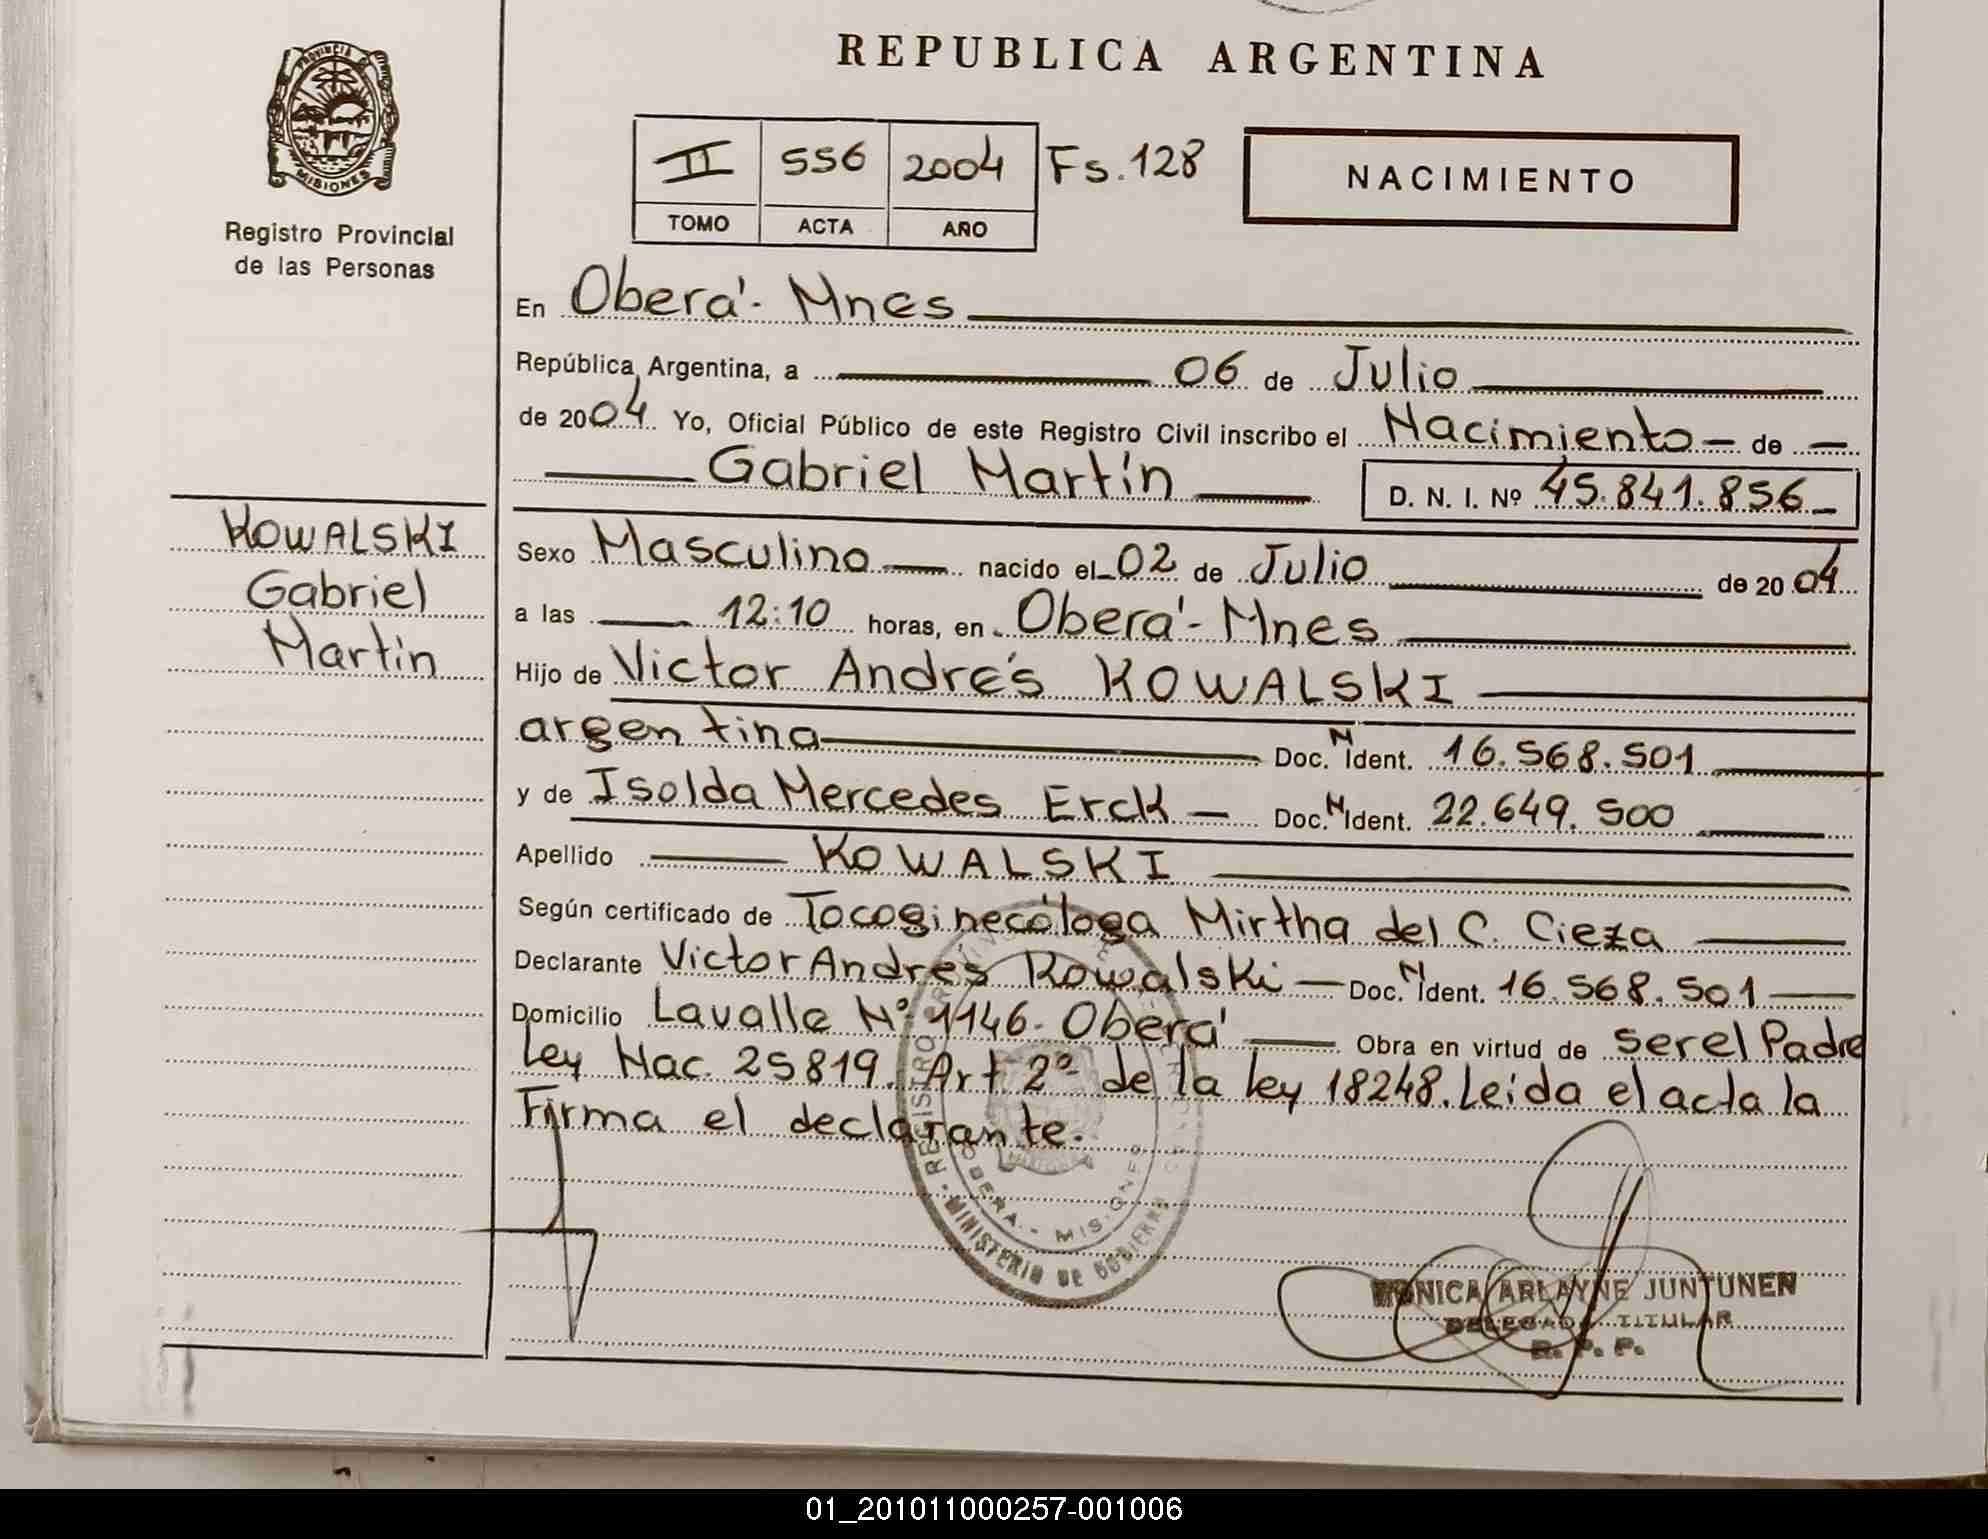 REPUBLICA ARGENTINA
PROVINCIA DE
MISIONES
Registro Provincial
de las Personas
II 556 2004 Fs. 128
TOMO ACTA AÑO
NACIMIENTO
En Oberá - Mnes
República Argentina, a 06 de Julio
de 2004 Yo, Oficial Público de este Registro Civil inscribo el Nacimiento de
Gabriel Martín D. N. I. Nº 45.841.856
KOWALSKI
Gabriel
Martín
Sexo Masculino nacido el 02 de Julio de 2004
a las 12:10 horas, en Oberá - Mnes
Hijo de Victor Andrés KOWALSKI
argentina Doc. N Ident. 16.568.501
y de Isolda Mercedes Erck Doc. N Ident. 22.649.500
Apellido KOWALSKI
Según certificado de Tocoginecóloga Mirtha del C. Cieza
Declarante Victor Andres Kowalski Doc. N Ident. 16.568.501
Domicilio Lavalle Nº 1146. Oberá Obra en virtud de ser el Padre
Ley Nac. 25819. Art 2º de la ley 18248. Leida el acta la
Firma el declarante.
REGISTRO
OBERA - MISIONES
MINISTERIO DE GOBIERNO
MONICA ARLAYNE JUNTUNEN
DELEGADA TITULAR
R. P. P.
01_201011000257-001006